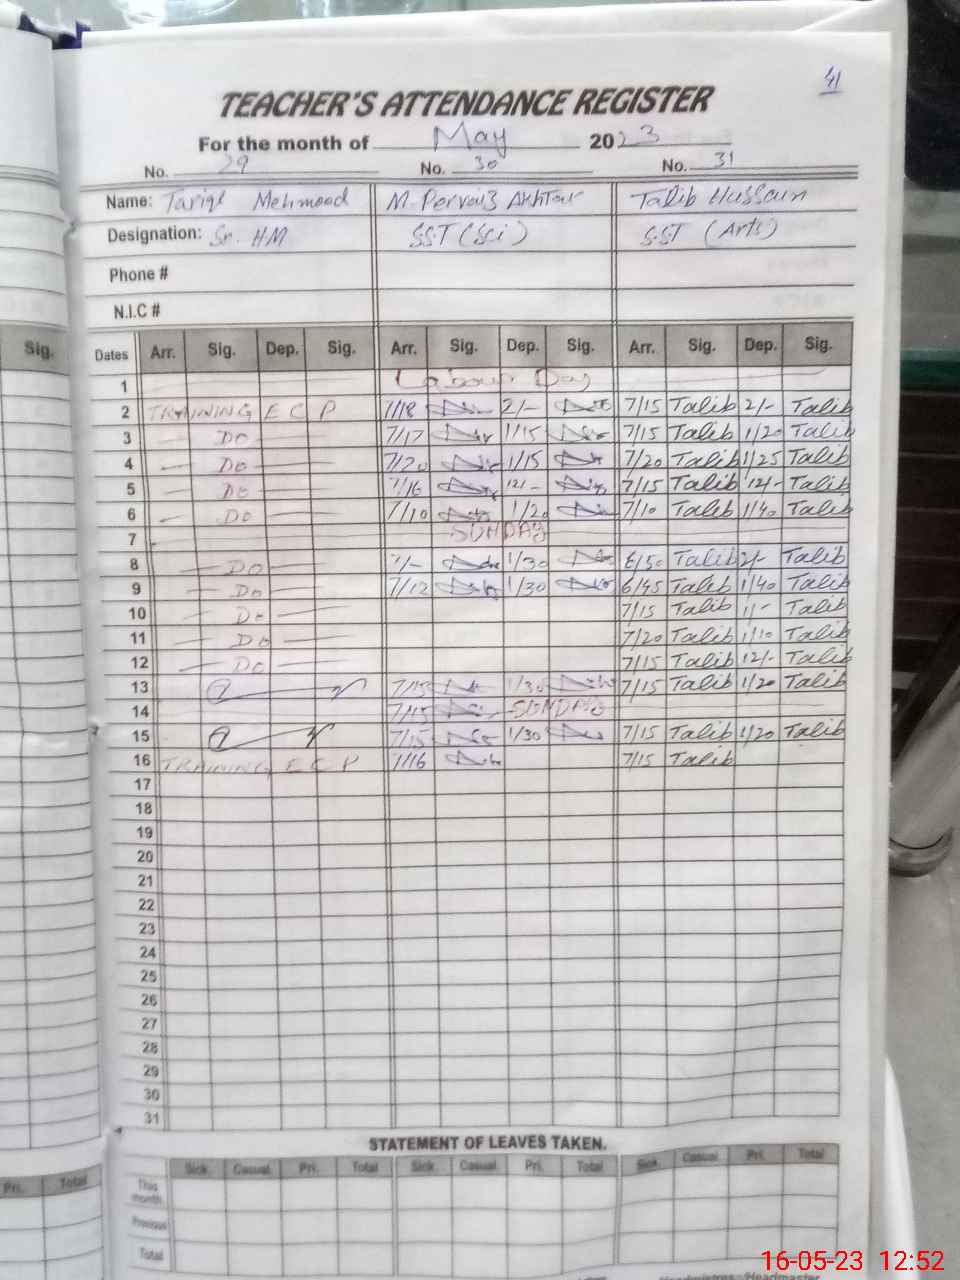 41
TEACHER'S ATTENDANCE REGISTER
For the month of May 2023
No. 29 No. 30 No. 31
Name: Tariq Mehmood M. Pervaiz Akhtar Talib Hussain
Designation: Sr. HM SST (Sci) SST (Arts)
Phone #
N.I.C #
Sig. Dates Arr. Sig. Dep. Sig. Arr. Sig. Dep. Sig. Arr. Sig. Dep. Sig.
1 Labour Day
2 TRAINING E C P 7/18 2/- 7/15 Talib 2/- Talib
3 — Do — 7/17 1/15 7/15 Talib 1/20 Talib
4 — Do — 7/20 1/15 7/20 Talib 1/25 Talib
5 — Do — 7/16 12/- 7/15 Talib 12/- Talib
6 — Do — 7/10 1/20 7/10 Talib 1/40 Talib
7 SUNDAY
8 — Do — 7/- 1/30 6/50 Talib 2/- Talib
9 — Do — 7/12 1/30 6/45 Talib 1/40 Talib
10 — Do — 7/15 Talib 1/- Talib
11 — Do — 7/20 Talib 1/10 Talib
12 — Do — 7/15 Talib 12/- Talib
13 7/15 1/30 7/15 Talib 1/20 Talib
14 7/15 SUNDAY
15 7/15 1/30 7/15 Talib 1/20 Talib
16 TRAINING E C P 7/16 7/15 Talib
17
18
19
20
21
22
23
24
25
26
27
28
29
30
31
STATEMENT OF LEAVES TAKEN.
Pri. Total Sick. Casual. Pri. Total Sick. Casual. Pri. Total Sick. Casual. Pri. Total
This month
Previous
Total
16-05-23 12:52